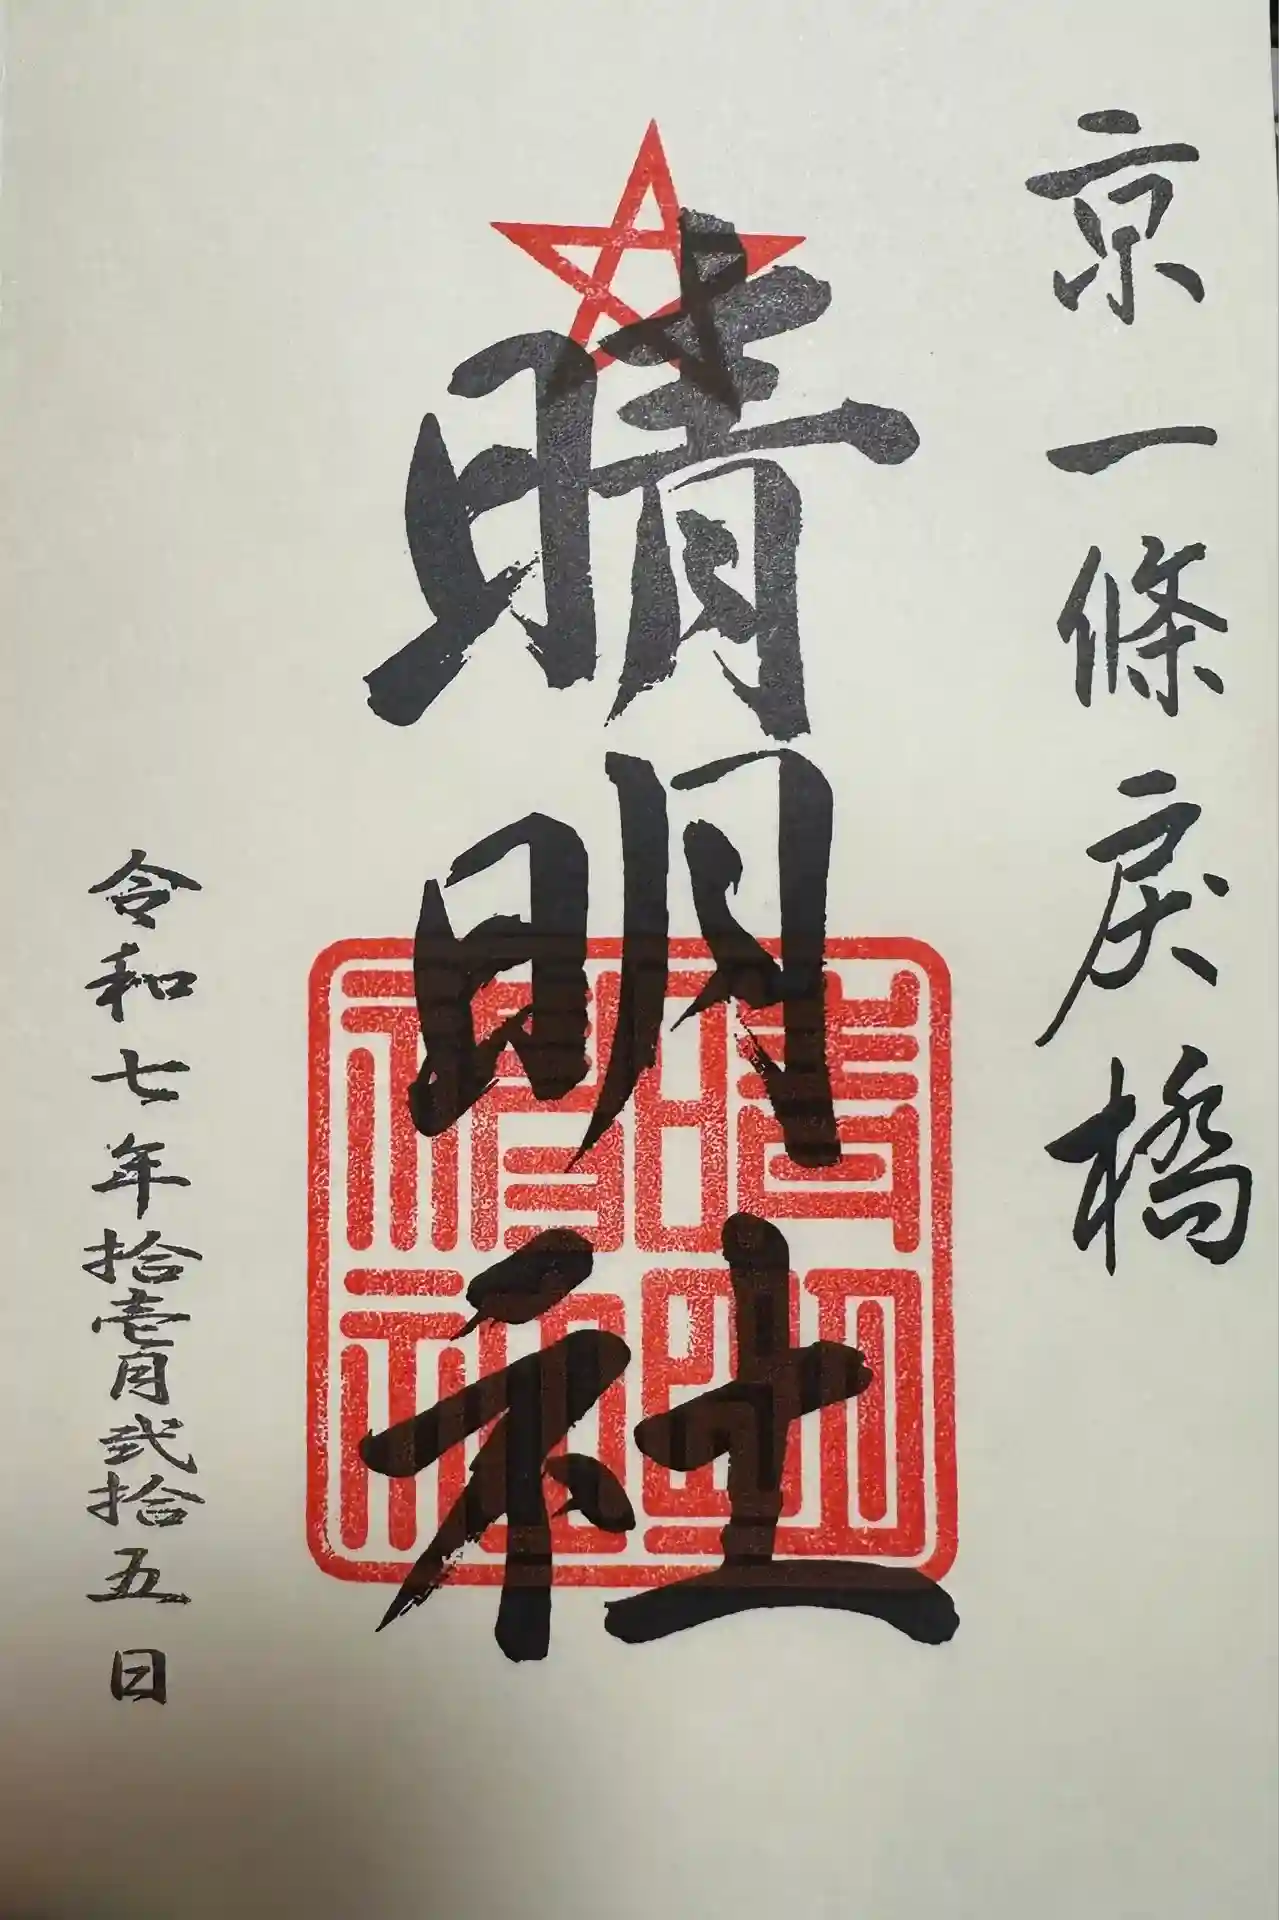 京一條戻橋
晴明社
令和七年拾壱月弐拾五日